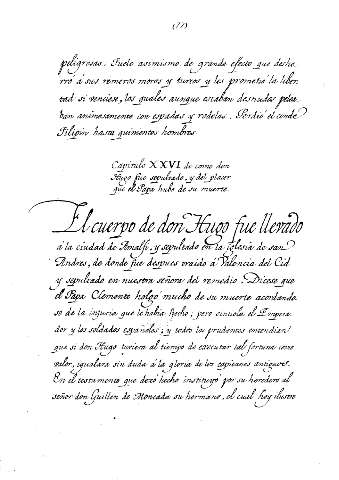 (77)
peligrosas. Fuele asimismo de grande efecto que deshe
rró á sus remeros moros y turcos y les prometió la liber
tad si venciese, los quales aunque estaban desnudos pelea
ban animosamente con espadas y rodelas. Perdió el conde
Filipin hasta quinientos hombres
Capitulo XXVI de como don
Hugo fue sepultado, y del placer
que el Papa hubo de su muerte.
El cuerpo de don Hugo fue llevado
á la ciudad de Amalfi, y sepultado en la iglesia de san
Andres, de donde fue despues traido á Valencia del Cid
y sepultado en nuestra señora del remedio. Dicese que
el Papa Clemente holgó mucho de su muerte acordando
se de la injuria que le habia hecho; pero sintiola el Empera
dor y los soldados españoles; y todos los prudentes entendian
que si don Hugo tuviera al tiempo de executar tal fortuna como
valor, igualara sin duda á la gloria de los capitanes antiguos.
En el testamento que dexó hecho instituyó por su heredero al
señor don Guillen de Moncada su hermano, el cual hoy ilustre